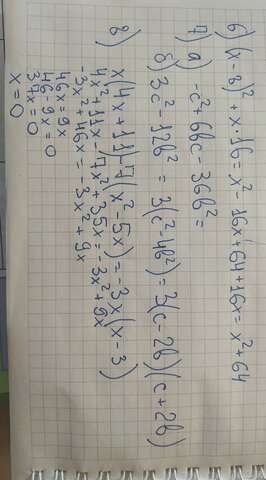 б) (x-8)² + x·16 = x² - 16x + 64 + 16x = x² + 64
7) а) -c² + 6bc - 36b² =
б) 3c² - 12b² = 3(c² - 4b²) = 3(c - 2b)(c + 2b)
8) x(4x + 11) - 7(x² - 5x) = -3x(x - 3)
4x² + 11x - 7x² + 35x = -3x² + 9x
-3x² + 46x = -3x² + 9x
46x = 9x
46 - 9x = 0
37x = 0
x = 0